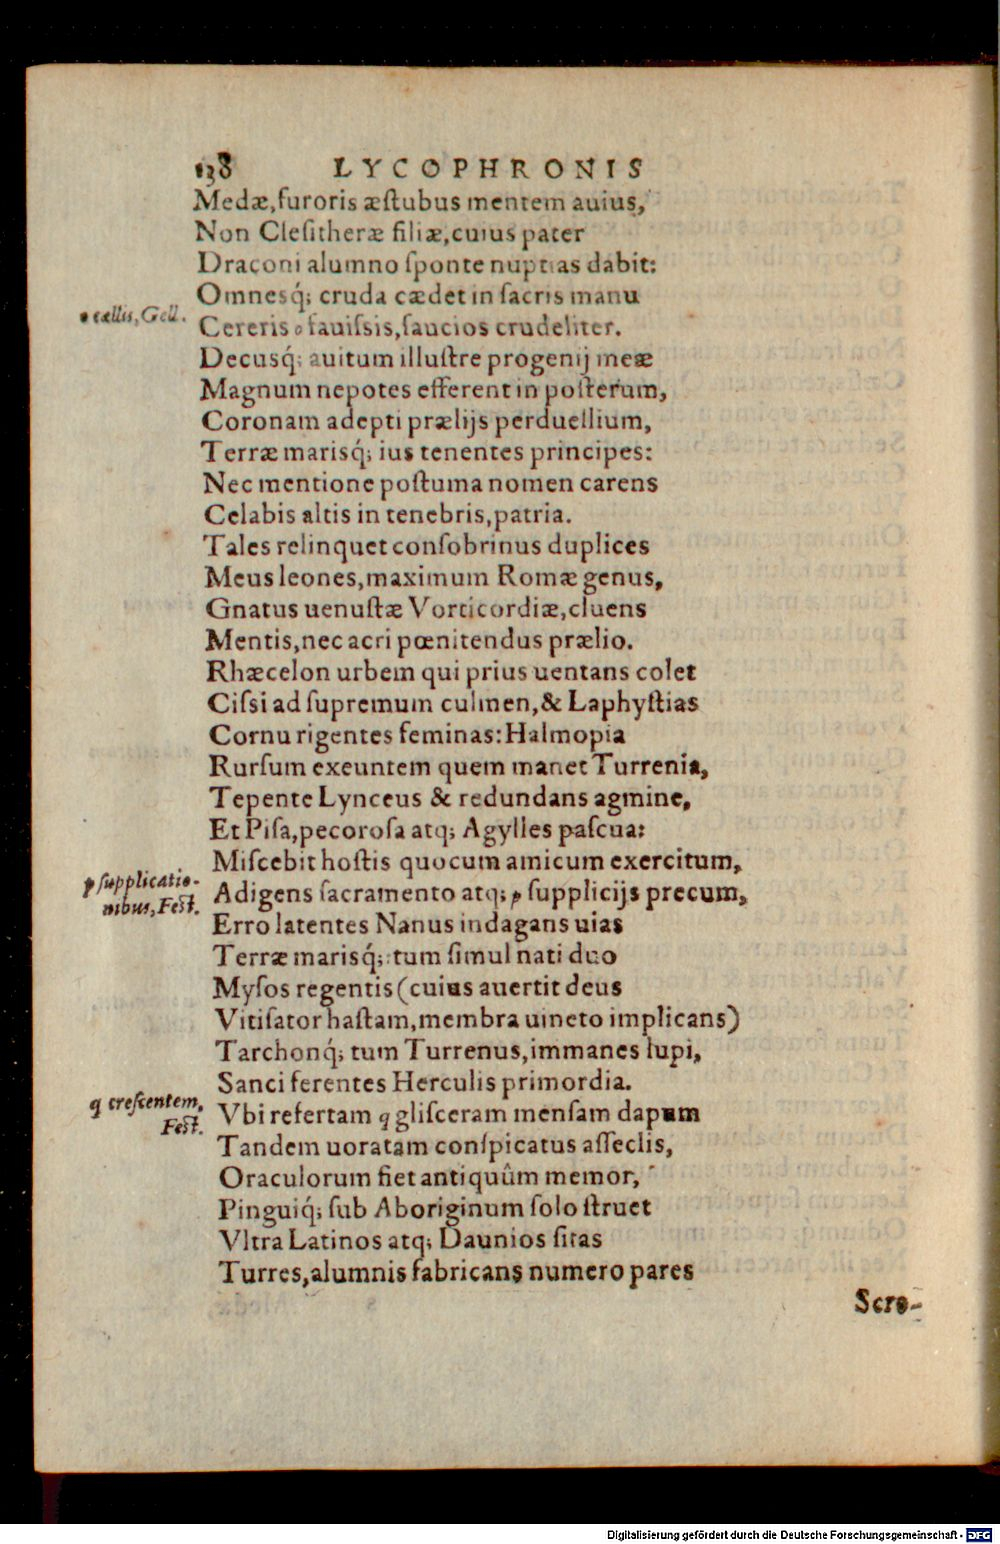 138 LYCOPHRONIS
Medæ,furoris æſtubus mentem auius,
Non Cleſitheræ filiæ,cuius pater
Draconi alumno ſponte nuptias dabit:
Omnesq́; cruda cædet in ſacris manu
o cellis, Gell.
Cereris o fauiſsis,ſaucios crudeliter.
Decusq́; auitum illuſtre progenij meæ
Magnum nepotes efferent in poſterum,
Coronam adepti prælijs perduellium,
Terræ marisq́; ius tenentes principes:
Nec mentione poſtuma nomen carens
Celabis altis in tenebris,patria.
Tales relinquet conſobrinus duplices
Meus leones,maximum Romæ genus,
Gnatus uenuſtæ Vorticordiæ,cluens
Mentis,nec acri pœnitendus prælio.
Rhæcelon urbem qui prius uentans colet
Ciſsi ad ſupremum culmen,& Laphyſtias
Cornu rigentes feminas:Halmopia
Rurſum exeuntem quem manet Turrenia,
Tepente Lynceus & redundans agmine,
Et Piſa,pecoroſa atq; Agylles paſcua:
Miſcebit hoſtis quocum amicum exercitum,
p ſupplicatio-
nibus, Feſt.
Adigens ſacramento atq; p ſupplicijs precum,
Erro latentes Nanus indagans uias
Terræ marisq́; tum ſimul nati duo
Myſos regentis (cuius auertit deus
Vitiſator haſtam,membra uineto implicans)
Tarchonq́; tum Turrenus,immanes lupi,
Sanci ferentes Herculis primordia.
q creſcentem,
Feſt.
Vbi refertam q gliſceram menſam dapum
Tandem uoratam conſpicatus aſſeclis,
Oraculorum fiet antiquûm memor,
Pinguiq́; ſub Aboriginum ſolo ſtruet
Vltra Latinos atq; Daunios ſitas
Turres,alumnis fabricans numero pares
Scro-
Digitalisierung gefördert durch die Deutsche Forschungsgemeinschaft - DFG